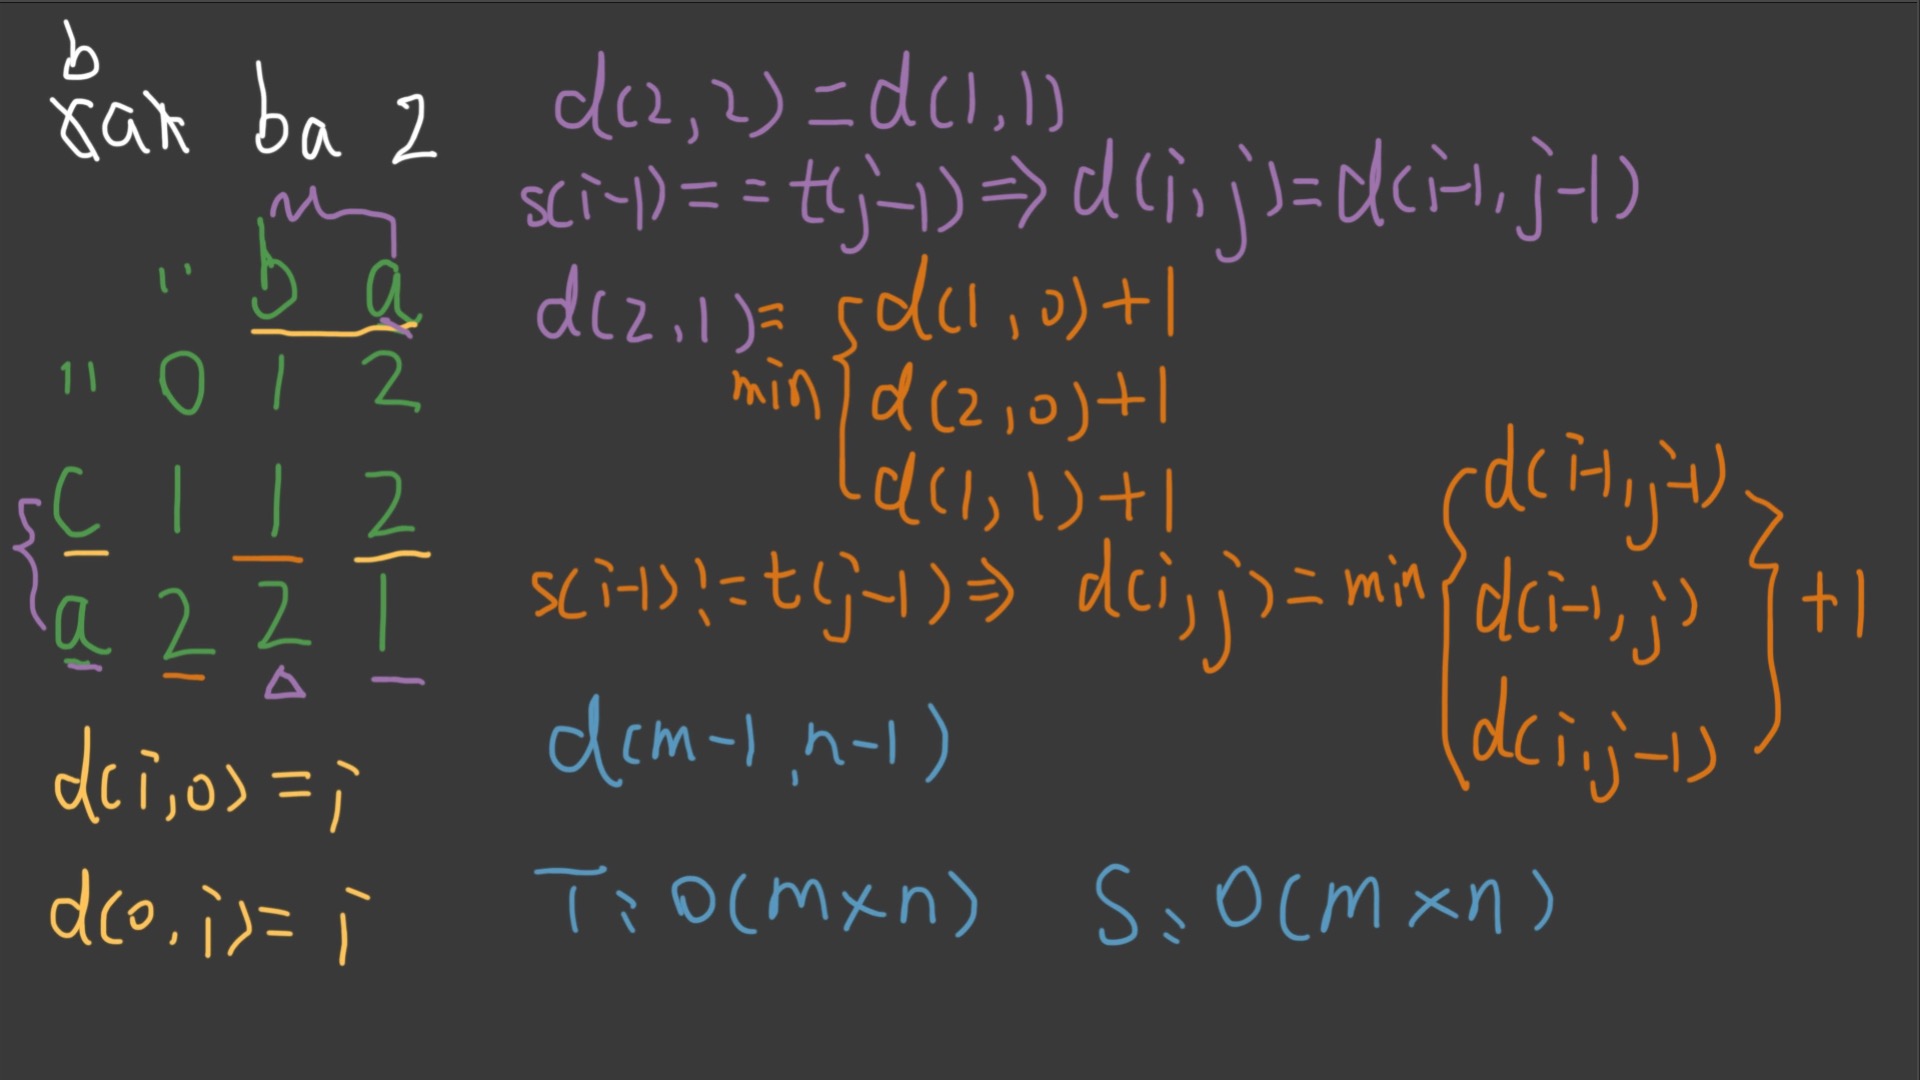 b
xax ba 2
" b a
" 0 1 2
c 1 1 2
a 2 2 1
d(i,0)=i
d(0,i)=i
d(2,2)=d(1,1)
s(i-1)==t(j-1)⇒d(i,j)=d(i-1,j-1)
d(2,1)=
min { d(1,0)+1
d(2,0)+1
d(1,1)+1
s(i-1)!=t(j-1)⇒ d(i,j)=min { d(i-1,j-1)
d(i-1,j)
d(i,j-1) } +1
d(m-1,n-1)
T:O(m×n) S:O(m×n)